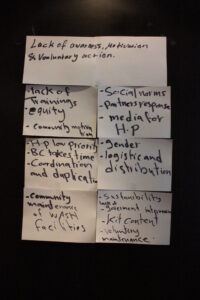 Lack of awareness, motivation
& Voluntary action.
-lack of
Trainings
- equity
- Community
- Social norms
- partners response
- media for
H.P
- H.p low priority
- BC takes time
- Coordination
and duplication
- Gender
- logistic and
distribution
- Community
maintenance
of WASH
facilities
- Sustainability
- Government
- Kit content
- Voluntary
maintenance.